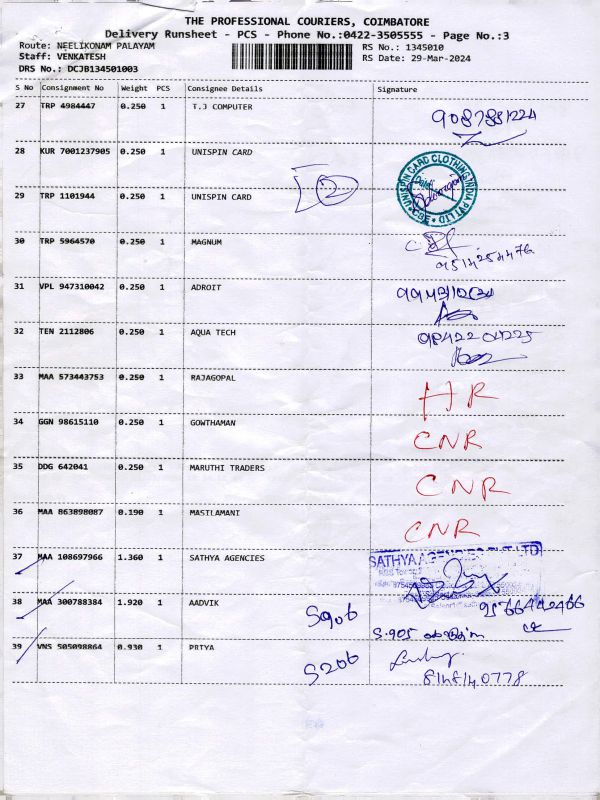 THE PROFESSIONAL COURIERS, COIMBATORE
Delivery Runsheet - PCS - Phone No.:0422-3505555 - Page No.:3
Route: NEELIKONAM PALAYAM
RS No.: 1345010
Staff: VENKATESH
RS Date: 29-Mar-2024
DRS No.: DCJB134501003
S No Consignment No Weight PCS Consignee Details Signature
27 TRP 4984447 0.250 1 T.J COMPUTER
9087881224
28 KUR 7001237905 0.250 1 UNISPIN CARD
UNISPIN CARD CLOTHING INDIA PVT LTD
CBE
29 TRP 1101944 0.250 1 UNISPIN CARD
30 TRP 5964570 0.250 1 MAGNUM
9514254476
31 VPL 947310042 0.250 1 ADROIT
32 TEN 2112806 0.250 1 AQUA TECH
9842204225
33 MAA 573443753 0.250 1 RAJAGOPAL
HR
34 GGN 98615110 0.250 1 GOWTHAMAN
CNR
35 DDG 642041 0.250 1 MARUTHI TRADERS
CNR
36 MAA 863898087 0.190 1 MASILAMANI
CNR
37 MAA 108697966 1.360 1 SATHYA AGENCIES
SATHYA AGENCIES PVT LTD
38 MAA 300788384 1.920 1 AADVIK
S906
9566442466
S.905
39 VNS 505098864 0.930 1 PRIYA
S206
8148140778